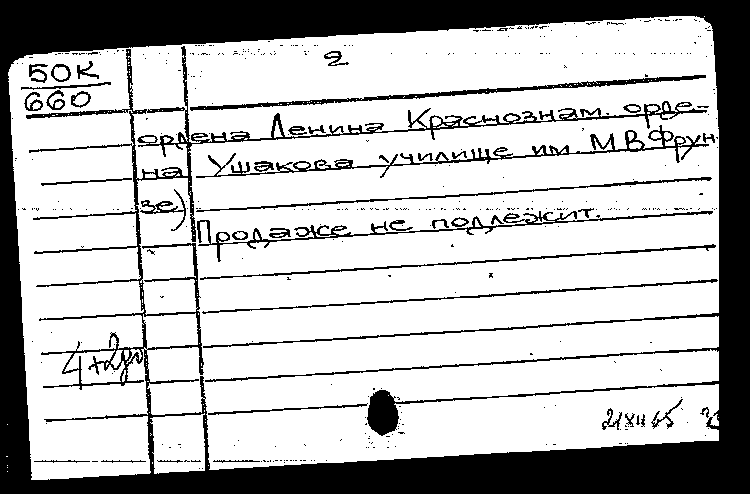 2
50К
660
ордена Ленина Краснознам. орде-
на Ушакова училище им. М В Фрун
зе)
Продаже не подлежит.
4+2